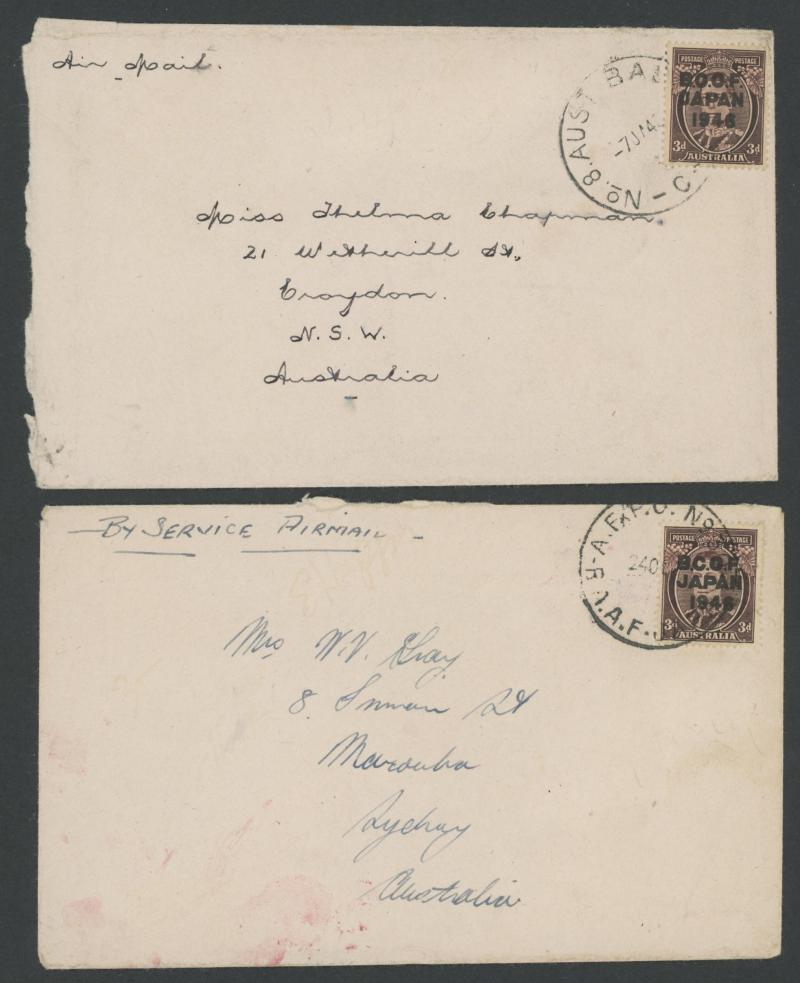 Air Mail.
No. 8. AUST BA
-7 JA 4
POSTAGE POSTAGE
B.C.O.F.
JAPAN
1946
3d AUSTRALIA 3d
Miss Thelma Chapman
21 Wetherill St.
Croydon.
N.S.W.
Australia
- By Service Airmail -
A.F.P.O. No
24 OC
R.A.A.F.
POSTAGE POSTAGE
B.C.O.F.
JAPAN
1946
3d AUSTRALIA 3d
Mrs W.V. Gray
8 Inman St
Marouba
Sydney
Australia